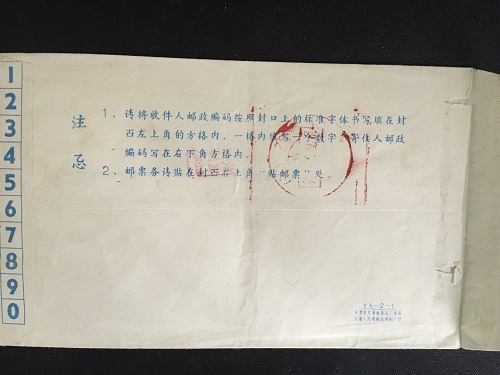 1
2
3
4
5
6
7
8
9
0
注意
1、请将收件人邮政编码按照封口上的标准字体书写填在封
面左上角的方格内，一格内填写一个数字，寄件人邮政
编码写在右下角方格内。
2、邮票务请贴在封面右上角“贴邮票”处。
YX-2-1